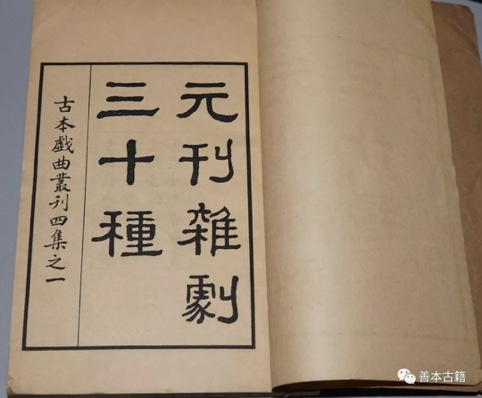 元刊雜劇
三十種
古本戲曲叢刊四集之一
善本古籍